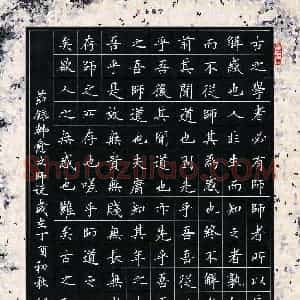 古之學者必有師師者所以
解惑也人非生而知之者孰
而不從師其為惑也終不解
前其聞道也固先乎吾吾從
乎吾後其聞道也亦先乎吾
之吾師道也夫庸知其年之
吾乎是故無貴無賤無長無
存師之所存也嗟乎師道之
矣欲人之無惑也難矣古之
節錄韓愈師說歲在丁酉初秋
Shufaziliao.com